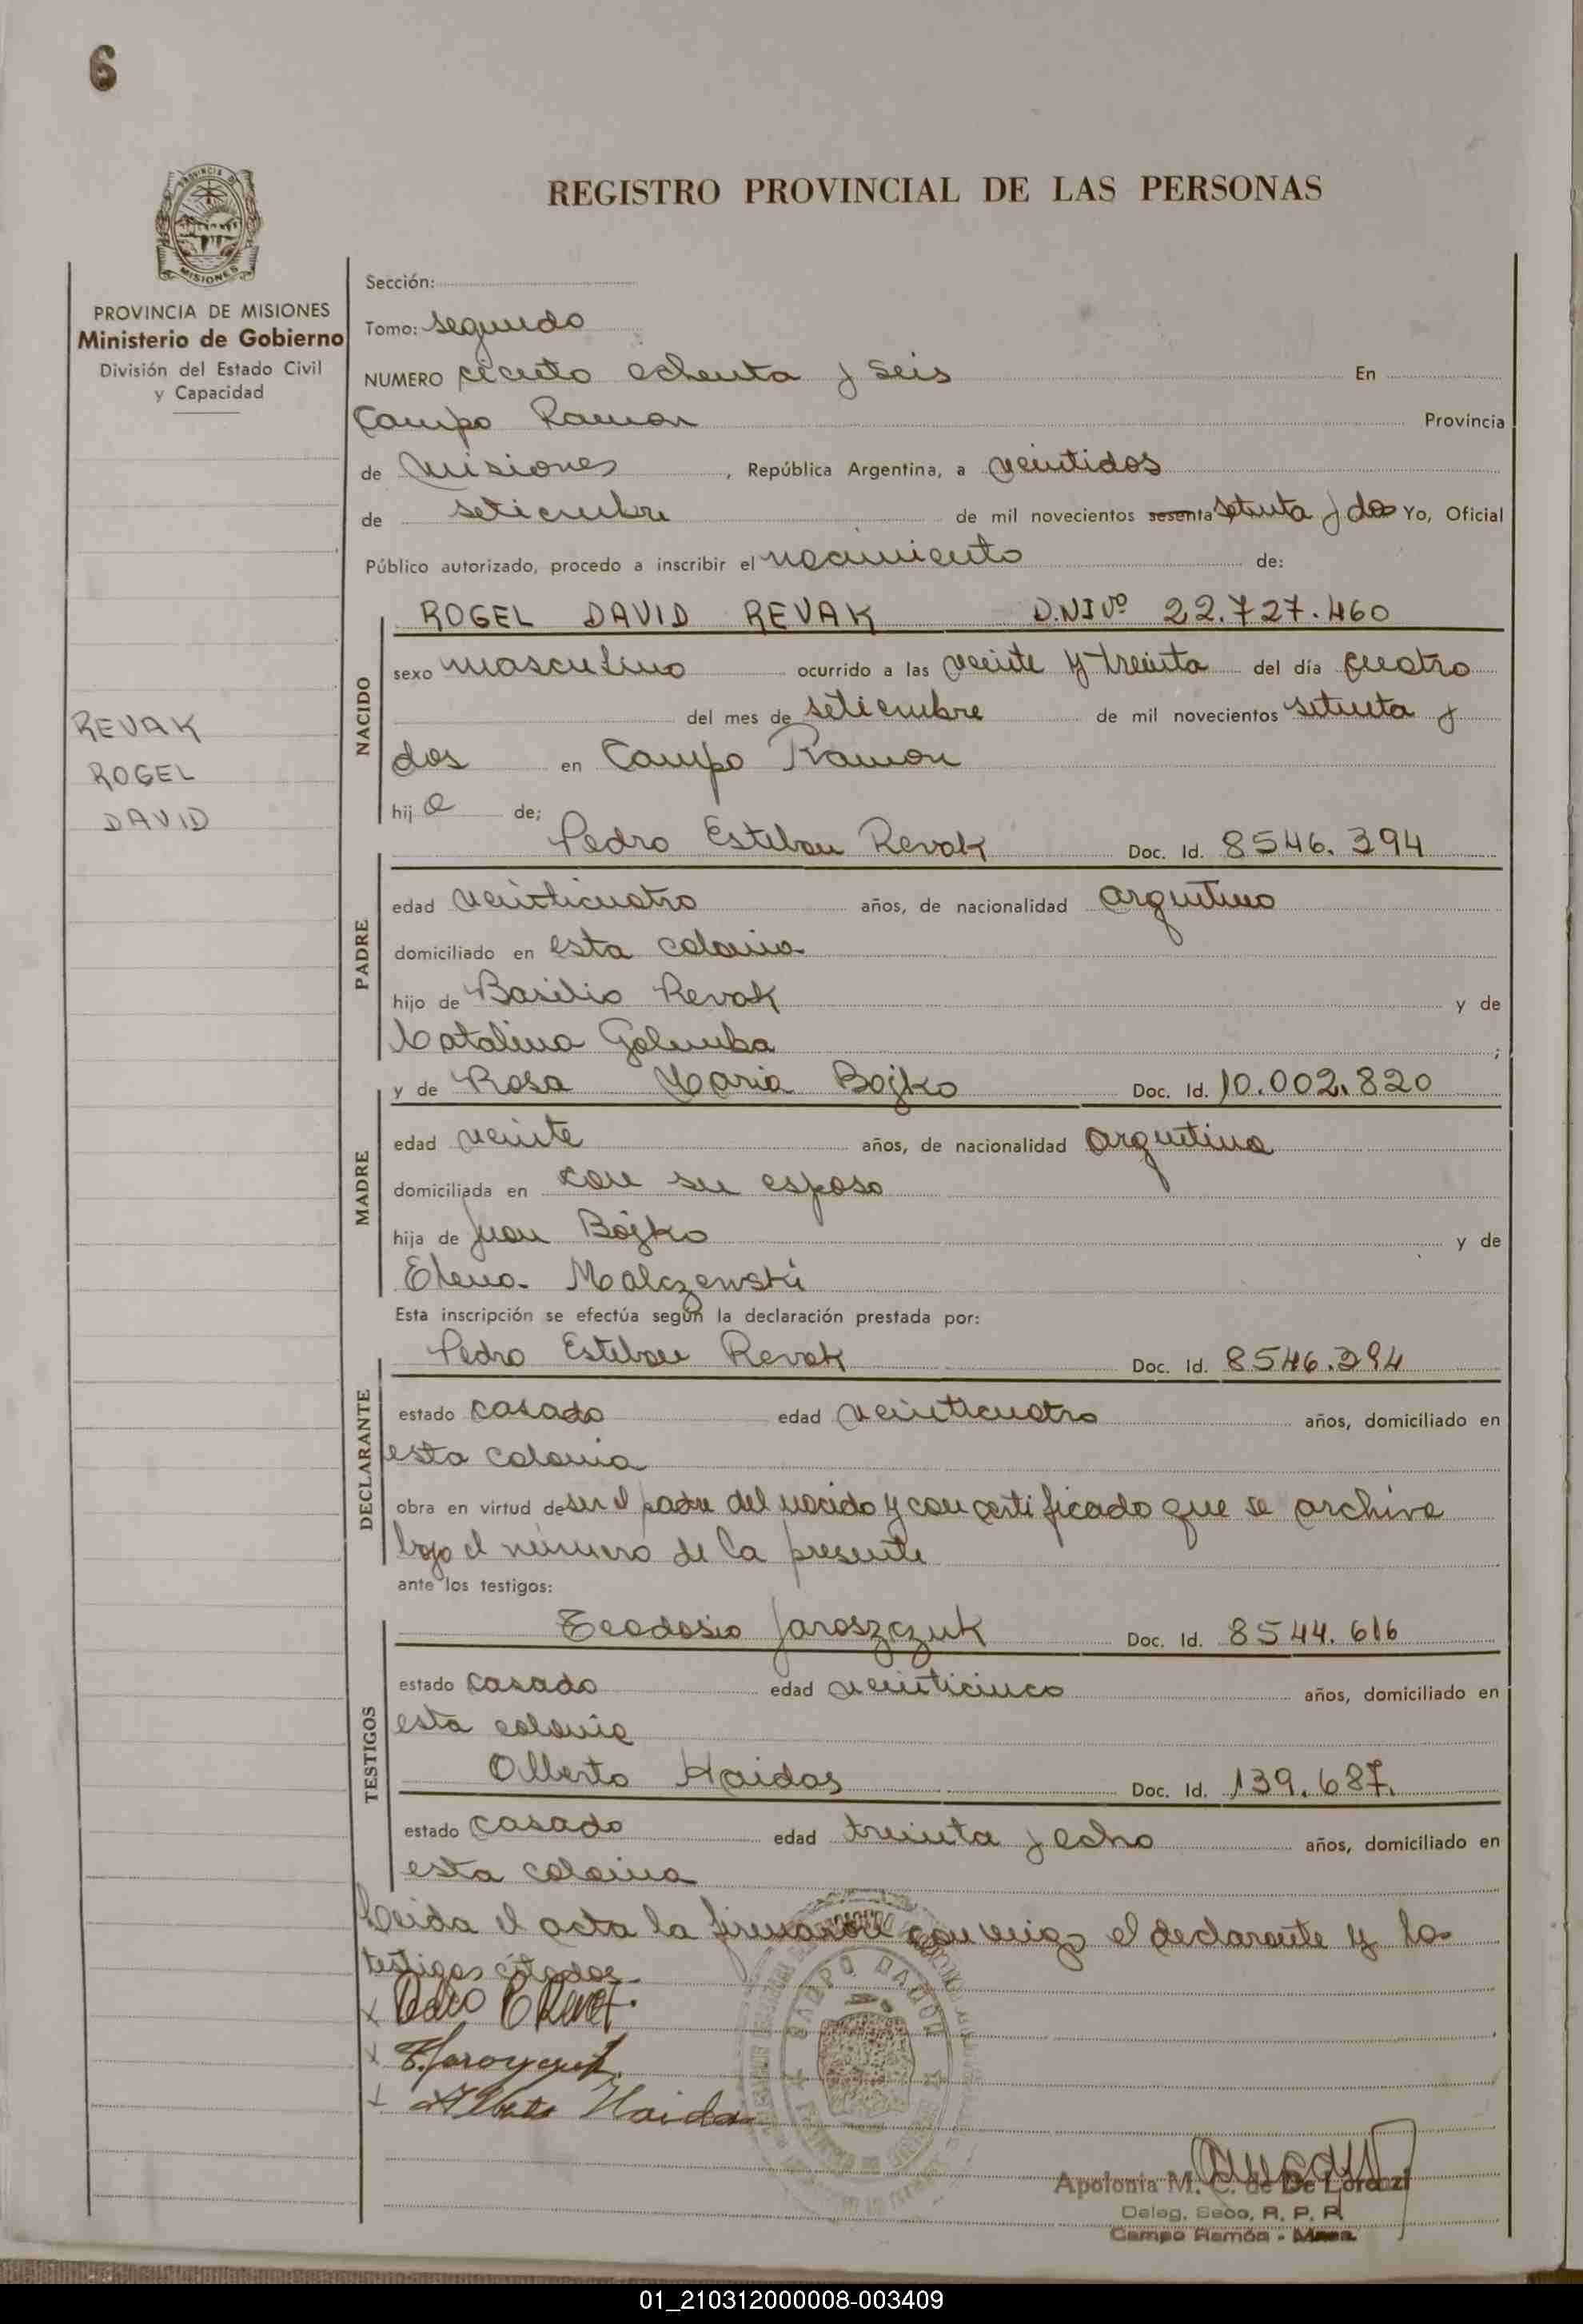 6
REGISTRO PROVINCIAL DE LAS PERSONAS
PROVINCIA DE MISIONES
Ministerio de Gobierno
División del Estado Civil
y Capacidad
REVAK
ROGEL
DAVID
Sección:
Tomo: segundo
NUMERO ciento ochenta y seis En
Campo Ramon Provincia
de Misiones, República Argentina, a veintidos
de setiembre de mil novecientos sesenta setenta y dos Yo, Oficial
Público autorizado, procedo a inscribir el nacimiento de:
NACIDO
ROGEL DAVID REVAK D.NI Nº 22.727.460
sexo masculino ocurrido a las veinte y treinta del día cuatro
del mes de setiembre de mil novecientos setenta y
dos en Campo Ramon
hijo de;
PADRE
Pedro Esteban Revak Doc. Id. 8546.394
edad veinticuatro años, de nacionalidad argentino
domiciliado en esta colonia
hijo de Basilio Revak y de
Catalina Golemba;
MADRE
y de Rosa Maria Bojko Doc. Id. 10.002.820
edad veinte años, de nacionalidad argentina
domiciliada en con su esposo
hija de Juan Bojko y de
Elena Malczewski
Esta inscripción se efectúa según la declaración prestada por:
DECLARANTE
Pedro Esteban Revak Doc. Id. 8546.394
estado casado edad veinticuatro años, domiciliado en
esta colonia
obra en virtud de ser el padre del nacido y con certificado que se archiva
bajo el número de la presente
ante los testigos:
TESTIGOS
Teodosio Jaroszczuk Doc. Id. 8544.616
estado casado edad veinticinco años, domiciliado en
esta colonia
Alberto Haidas Doc. Id. 139.687.
estado casado edad treinta y ocho años, domiciliado en
esta colonia
Leida el acta la firmaron conmigo el declarante y los
testigos citados.
x Pedro E Revak.
x
x Alberto Haidas
CAMPO RAMON
Apolonia M. C. de De Lorenzi
Deleg. Secc. R. P. P.
Campo Ramón - Mnes.
01_210312000008-003409